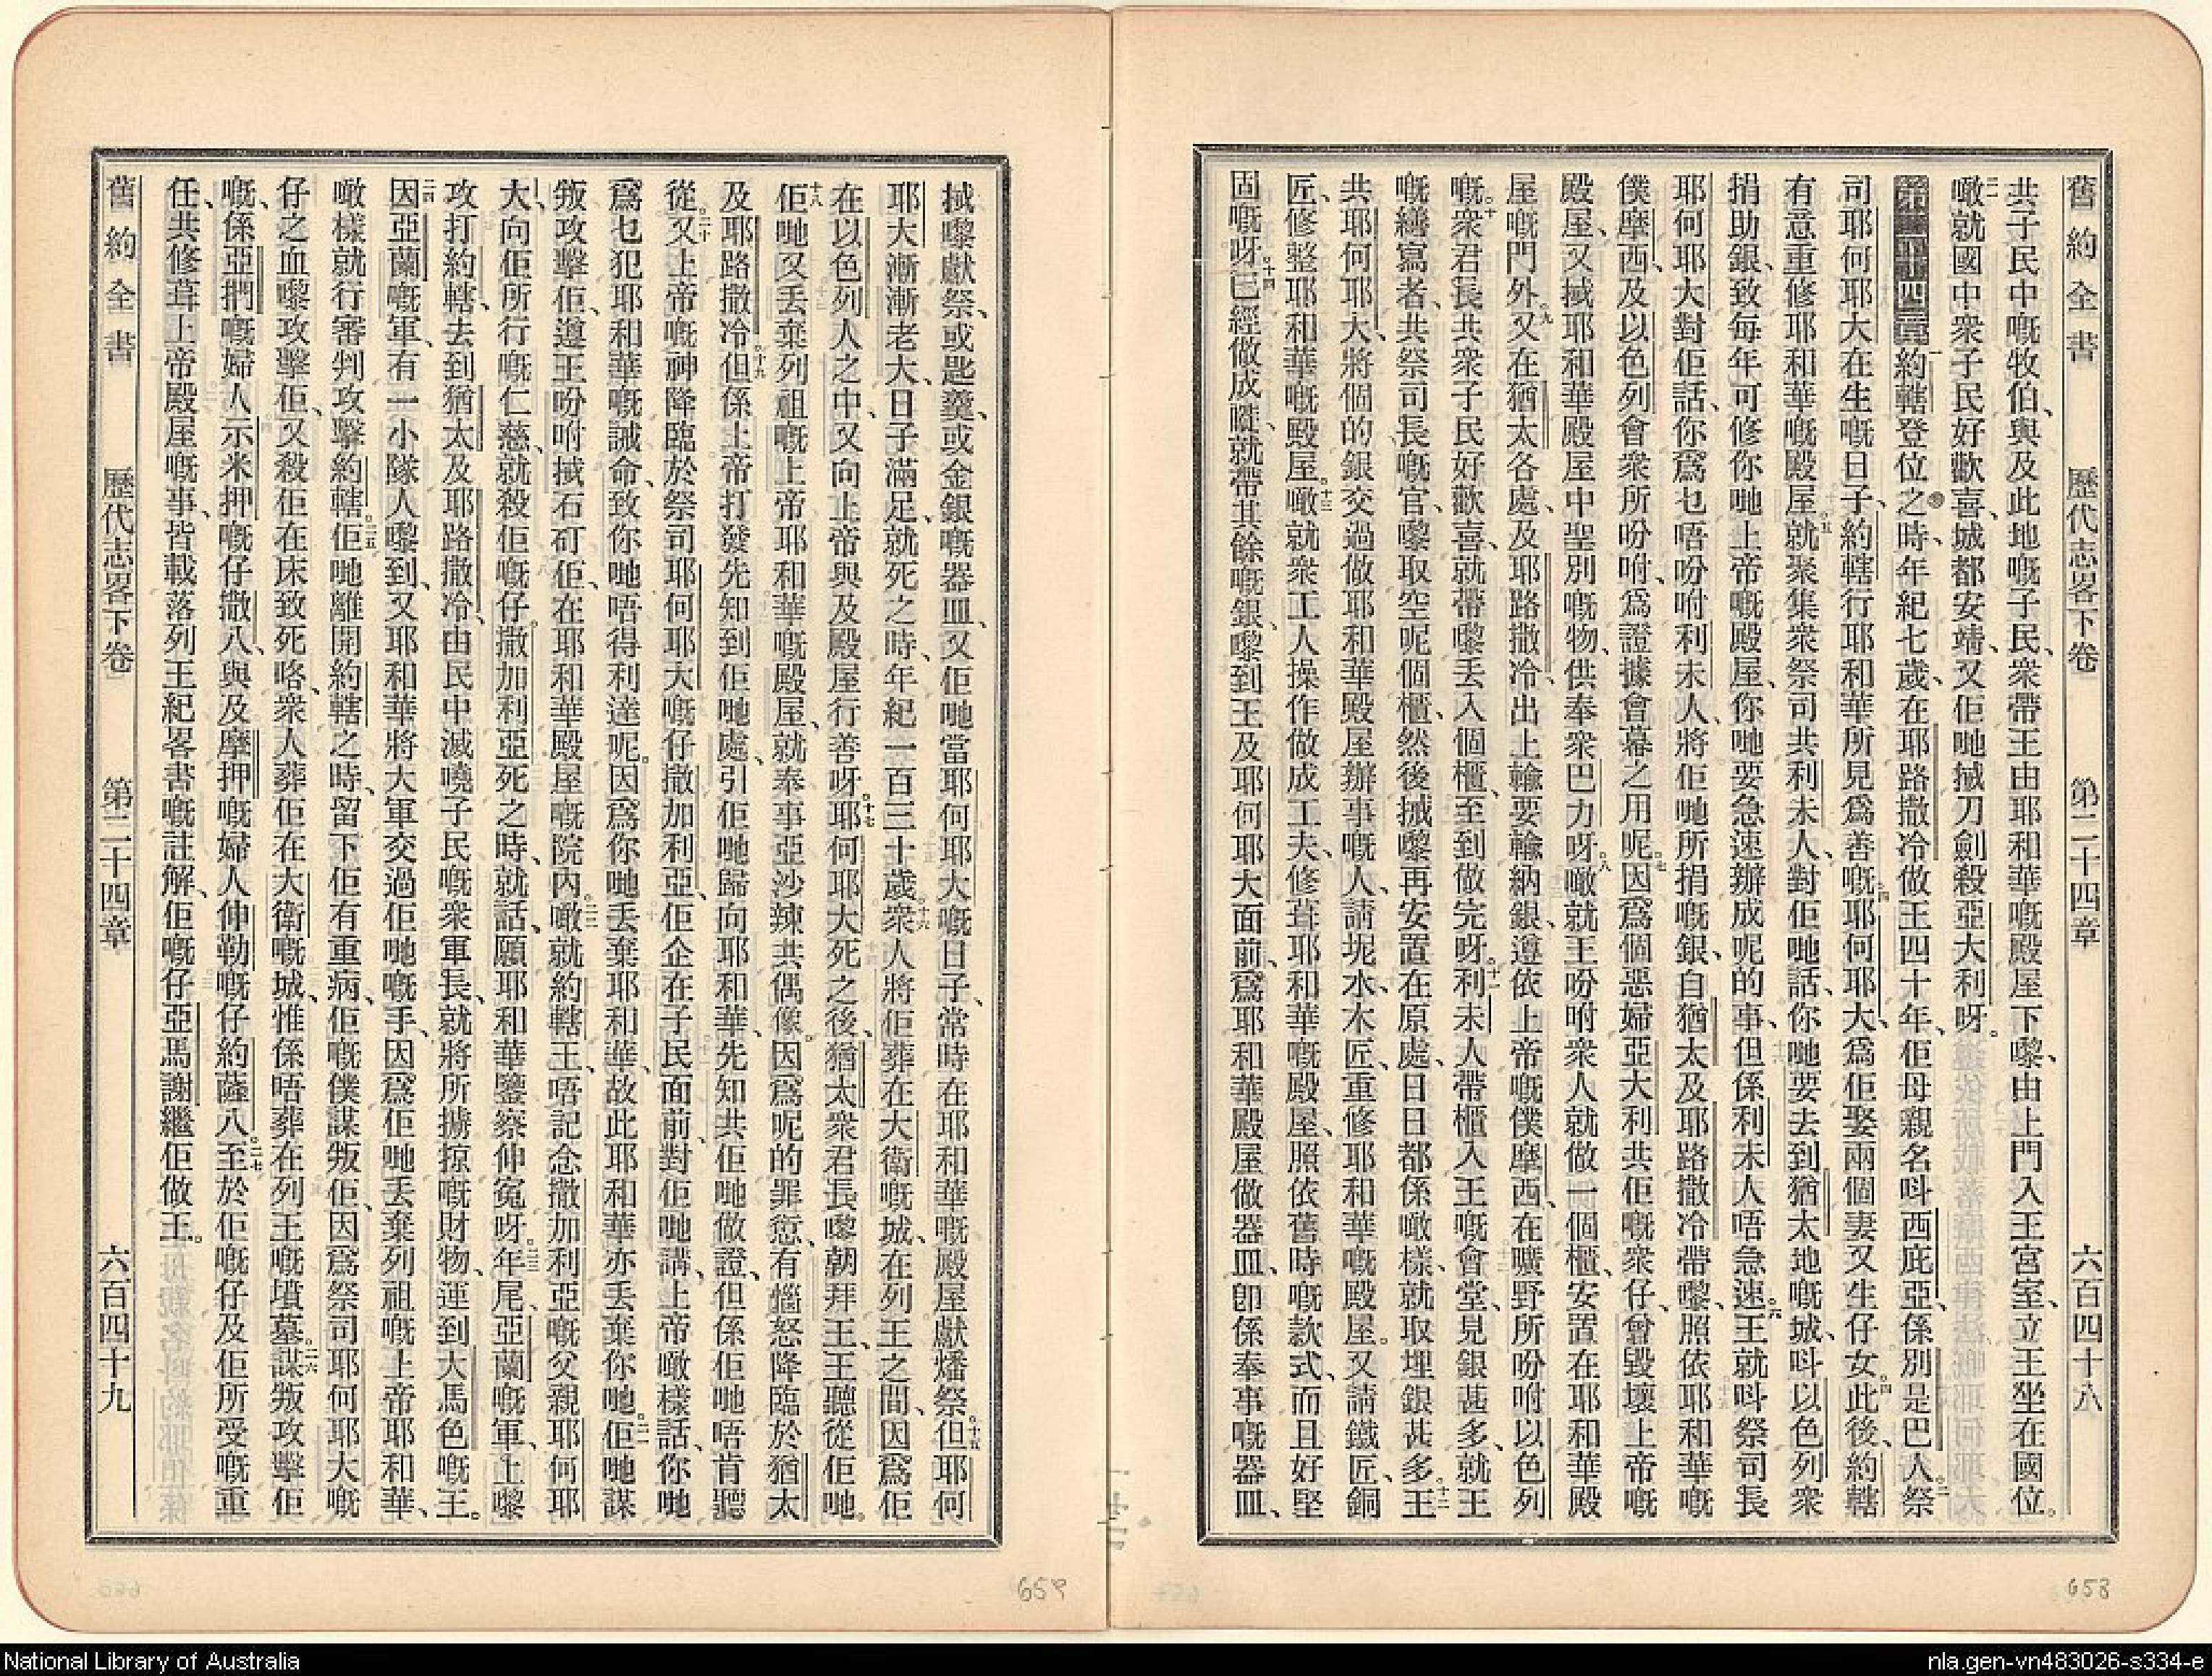 舊約全書 歷代志畧下卷 第二十四章 六百四十八
共子民中嘅牧伯、與及此地嘅子民、衆帶王由耶和華嘅殿屋下嚟、由上門入王宮室、立王坐在國位。
二一噉就國中衆子民好歡喜、城都安靖、又佢哋搣刀劍殺亞大利呀。
第二十四章 一約轄登位之時、年紀七歲、在耶路撒冷做王四十年、佢母親名呌西庇亞、係別是巴人。二祭
司耶何耶大在生嘅日子、約轄行耶和華所見爲善嘅。耶何耶大、爲佢娶兩個妻又生仔女。四此後、約轄
有意重修耶和華嘅殿屋。五就聚集衆祭司共利未人、對佢哋話、你哋要去到猶太地嘅城、呌以色列衆
捐助銀、致每年可修你哋上帝嘅殿屋、你哋要急速辦成呢的事、但係利未人唔急速。六王就呌祭司長
耶何耶大對佢話、你爲乜唔吩咐利未人、將佢哋所捐嘅銀、自猶太及耶路撒冷帶嚟、照依耶和華嘅
僕摩西、及以色列會衆所吩咐、爲證據會幕之用呢。七因爲個惡婦亞大利共佢嘅衆仔、曾毀壞上帝嘅
殿屋、又搣耶和華殿屋中聖別嘅物、供奉衆巴力呀。八噉就王吩咐衆人就做一個櫃、安置在耶和華殿
屋嘅門外。九又在猶太各處、及耶路撒冷出上輸要輸納銀、遵依上帝嘅僕摩西、在曠野所吩咐以色列
嘅。十衆君長共衆子民好歡喜、就帶嚟丢入個櫃、至到做完呀。十一利未人帶櫃入王嘅會堂、見銀甚多、就王
嘅繕寫者、共祭司長嘅官、嚟取空呢個櫃、然後搣嚟再安置在原處、日日都係噉樣、就取埋銀甚多。十二王
共耶何耶大、將個的銀交過做耶和華殿屋辦事嘅人、請坭水木匠、重修耶和華嘅殿屋。又請鐵匠、銅
匠、修整耶和華嘅殿屋。十三噉就衆工人操作做成工夫、修葺耶和華嘅殿屋、照依舊時嘅款式、而且好堅
固嘅呀。十四已經做成嘥、就帶其餘嘅銀、嚟到王及耶何耶大面前、爲耶和華殿屋做器皿、卽係奉事嘅器皿、
658
搣嚟獻祭、或匙羹、或金銀嘅器皿、又佢哋當耶何耶大嘅日子、常時在耶和華嘅殿屋獻燔祭。十五但耶何
耶大漸漸老大、日子滿足、就死之時、年紀一百三十歲。十六衆人將佢葬在大衛嘅城、在列王之間、因爲佢
在以色列人之中、又向上帝與及殿屋行善呀。十七耶何耶大死之後、猶太衆君長嚟朝拜王、王聽從佢哋。
十八佢哋又丢棄列祖嘅上帝耶和華嘅殿屋、就奉事亞沙辣共偶像。因爲呢的罪愆、有惱怒降臨於猶太
及耶路撒冷。十九但係上帝打發先知到佢哋處、引佢哋歸向耶和華、先知共佢哋做證、但係佢哋唔肯聽
從。二十又上帝嘅神降臨於祭司耶何耶大嘅仔撒加利亞、佢企在子民面前、對佢哋講、上帝噉樣話、你哋
爲乜犯耶和華嘅誡命、致你哋唔得利達呢。因爲你哋丢棄耶和華、故此耶和華亦丢棄你哋。二一佢哋謀
叛攻擊佢、遵王吩咐搣石矴佢、在耶和華殿屋嘅院內。二二噉就約轄王、唔記念撒加利亞嘅父親耶何耶
大、向佢所行嘅仁慈、就殺佢嘅仔。撒加利亞死之時、就話、願耶和華鑒察伸寃呀。二三年尾、亞蘭嘅軍、上嚟
攻打約轄、去到猶太及耶路撒冷、由民中滅嘵子民嘅衆軍長、就將所擄掠嘅財物、運到大馬色嘅王。
二四因亞蘭嘅軍、有一小隊人嚟到、又耶和華將大軍交過佢哋嘅手、因爲佢哋丢棄列祖嘅上帝耶和華、
噉樣就行審判攻擊約轄。二五佢哋離開約轄之時、留下佢有重病、佢嘅僕謀叛佢、因爲祭司耶何耶大嘅
仔之血嚟攻擊佢、又殺佢在床致死咯、衆人葬佢在大衛嘅城、惟係唔葬在列王嘅墳墓。二六謀叛攻擊佢
嘅、係亞捫嘅婦人示米押嘅仔撒八、與及摩押嘅婦人伸勒嘅仔約薩八。二七至於佢嘅仔及佢所受嘅重
任、共修葺上帝殿屋嘅事、皆載落列王紀畧書嘅註解、佢嘅仔亞馬謝繼佢做王。
舊約全書 歷代志畧下卷 第二十四章 六百四十九
659
National Library of Australia
nla.gen-vn483026-s334-e